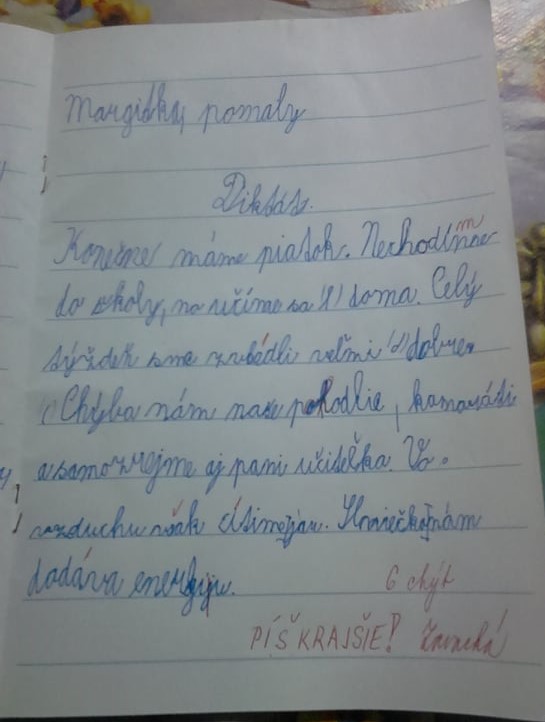 Margidka, pomaly
Diktát.
Konečne máme piatok. Nechodíme
do školy, no učíme sa doma. Celý
týždeň sme zvládli veľmi dobre.
Chýba nám naše pohodlie, kamaráti
a samozrejme aj pani učiteľka. Vo
vzduchu však cítime jar. Slniečko nám
dodáva energiu.
6 chýb
PÍŠ KRAJŠIE!